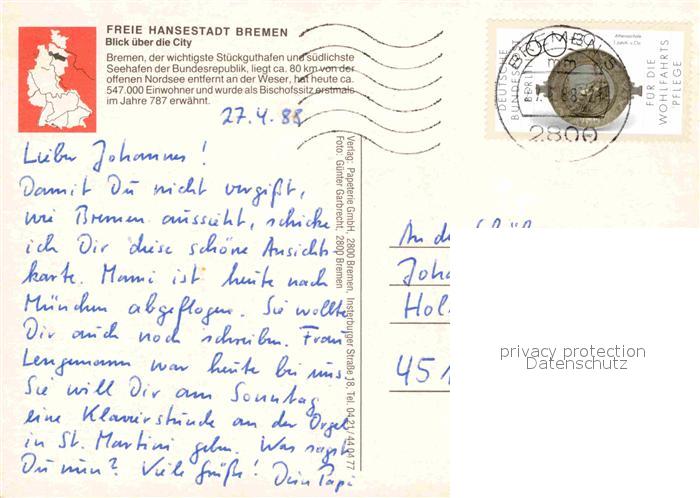 FREIE HANSESTADT BREMEN
Blick über die City
Bremen, der wichtigste Stückguthafen und südlichste
Seehafen der Bundesrepublik, liegt ca. 80 km von der
offenen Nordsee entfernt an der Weser, hat heute ca.
547.000 Einwohner und wurde als Bischofssitz erstmals
im Jahre 787 erwähnt.
27.4.88
Lieber Johannes!
Damit Du nicht vergißt,
wie Bremen aussieht, schicke
ich Dir diese schöne Ansichts-
karte. Mami ist heute nach
München abgeflogen. Sie wollte
Dir auch noch schreiben. Frau
Lengemann war heute bei uns.
Sie will Dir am Sonntag
eine Klavierstunde an der Orgel
in St. Martini geben. Was sagst
Du nun? Viele Grüße! Dein Papi
Verlag: Papeterie GmbH, 2800 Bremen, Insterburger Straße 18, Tel. 04 21/44 04 77
Foto: Günter Garbrecht, 2800 Bremen
DEUTSCHE
BUNDESPOST
BERLIN
60
FÜR DIE
WOHLFAHRTS
PFLEGE
BREMEN
2800
An die
Joha
Hol
451
privacy protection
Datenschutz